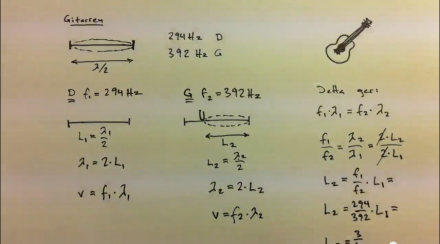 Gitarren
294 Hz D
392 Hz G
λ/2
D f₁ = 294 Hz
L₁ = λ₁/2
λ₁ = 2·L₁
v = f₁·λ₁
G f₂ = 392 Hz
L₂
L₂ = λ₂/2
λ₂ = 2·L₂
v = f₂·λ₂
Detta ger:
f₁·λ₁ = f₂·λ₂
f₁/f₂ = λ₂/λ₁ = 2·L₂/2·L₁
L₂ = f₁/f₂ · L₁ =
L₂ = 294/392 · L₁ =
L₂ = 3